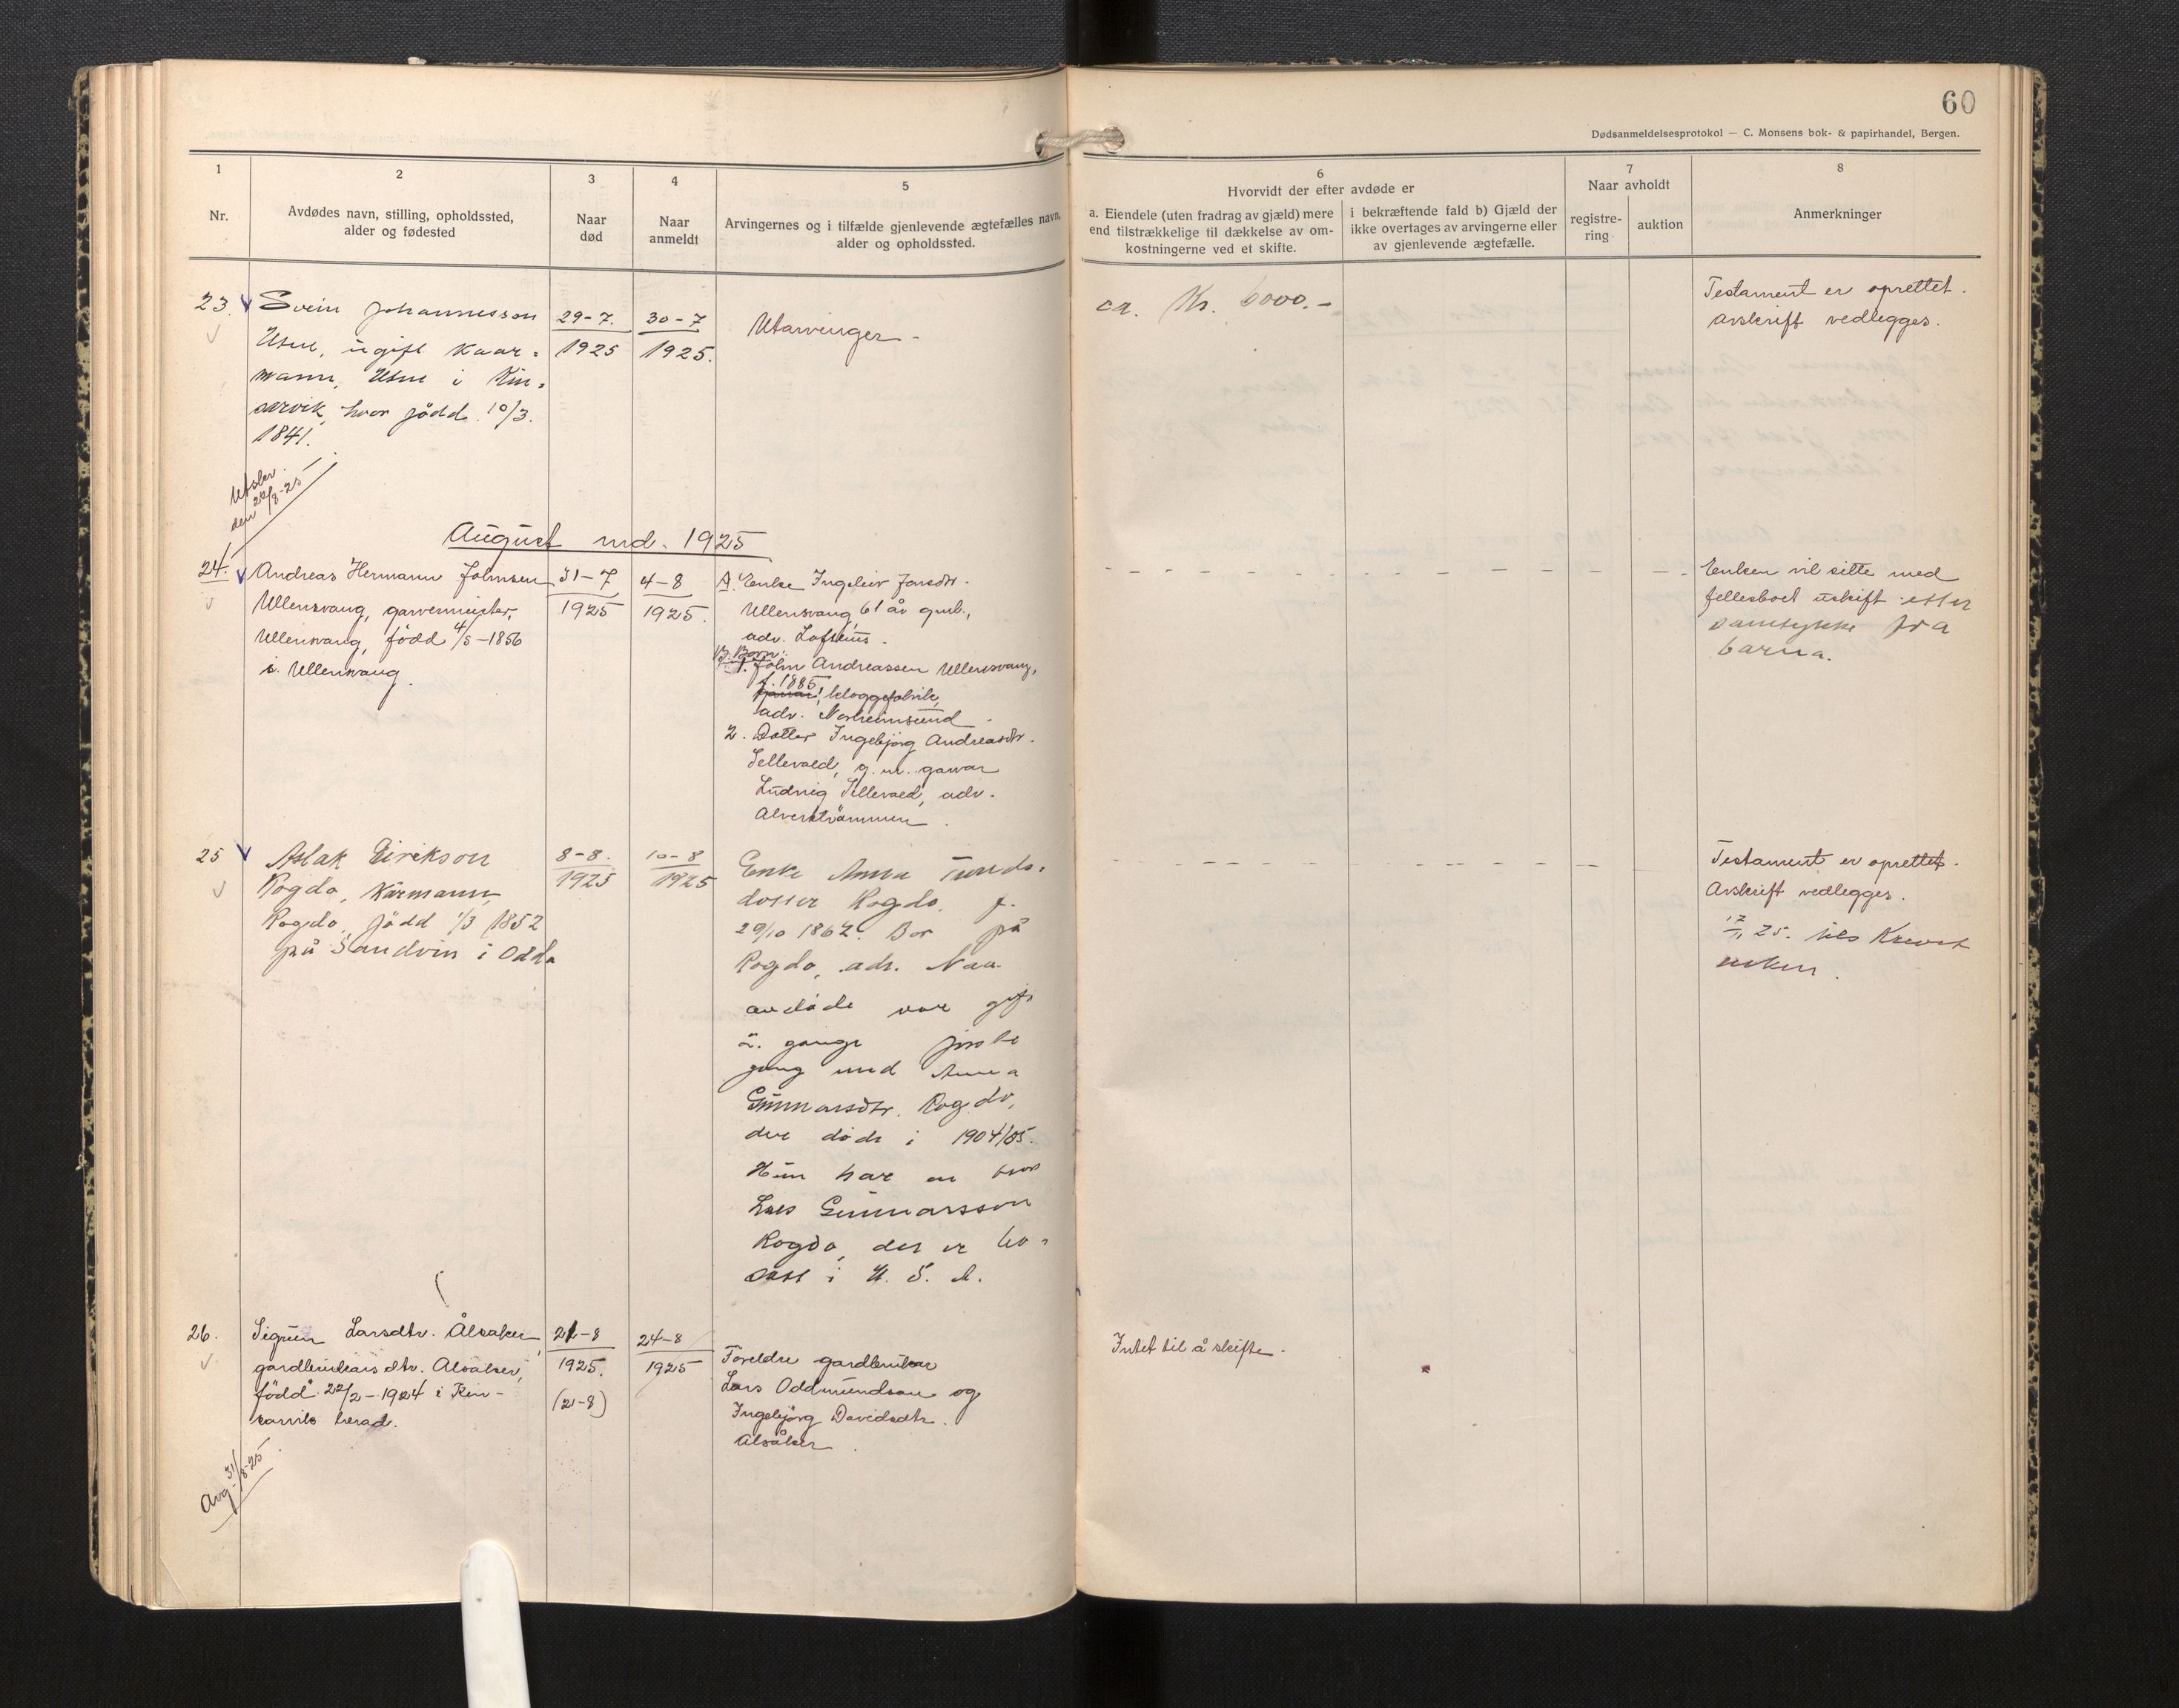 60
Dødsanmeldelsesprotokol — C. Monsens bok- & papirhandel, Bergen.
1
Nr.
2
Avdødes navn, stilling, opholdssted,
alder og fødested
3
Naar
død
4
Naar
anmeldt
5
Arvingernes og i tilfælde gjenlevende ægtefælles navn,
alder og opholdssted.
6
Hvorvidt der efter avdøde er
a. Eiendele (uten fradrag av gjæld) mere
end tilstrækkelige til dækkelse av om-
kostningerne ved et skifte.
i bekræftende fald b) Gjæld der
ikke overtages av arvingerne eller
av gjenlevende ægtefælle.
7
Naar avholdt
registre-
ring
auktion
8
Anmerkninger
23.
Svein Johannesson
Utne, ugift kaar=
mann, Utne i Kin=
sarvik, hvor född 10/3.
1841.
29-7.
1925
30-7
1925.
Utarvinger -
ca. Kr. 6000.-
Testament er oprettet.
Avskrift vedlegges.
den 22/8-25
August md. 1925
24.
Andreas Hermann Johnsen
Ullensvang, garvermeister,
Ullensvang, född 4/5-1856
i Ullensvang.
31-7
1925
4-8
1925.
A. Enke Ingeleiv Jonsdtr.
Ullensvang, 61 år gml.,
adr. Lofthus.
B. Born:
1. John Andreassen Ullensvang,
f. 1885, kloggefabrik,
adr. Norheimsund.
2. Dotter Ingebjörg Andreasdtr.
Sellevold, g. m. garvar
Ludvig Sellevold, adr.
Alverströmmen.
Enken vil sitte med
fellesboet uskift etter
samtykke fra
barna.
25
Aslak Eirikson
Rogdo, Kårmann,
Rogdo, född 1/3 1852
på Sandvin i Odda
8-8.
1925
10-8
1925
Enke Anna
dotter Rogdo, f.
29/10 1862. Bor på
Rogdo, adr. Naa.
avdøde var gift
2. gange første
gang med Anna
Gunnarsdtr. Rogdo,
der døde i 1904/05.
Hun har en bror
Lars Gunnarsson
Rogdo, der er bo=
satt i U. S. A.
Testament er oprettet.
Avskrift vedlegges.
25.
26.
Sigrun Larsdtr. Ålsaker,
gardbrukars dtr. Alsåker,
född 22/2-1924 i Kin-
sarvik herad.
21-8
1925.
(21-8)
24-8
1925
Foreldre gardbrukar
Lars Oddmundson og
Ingebjörg Davidsdtr.
Alsåker.
Intet til å skifte.
Avg. 31/8-25